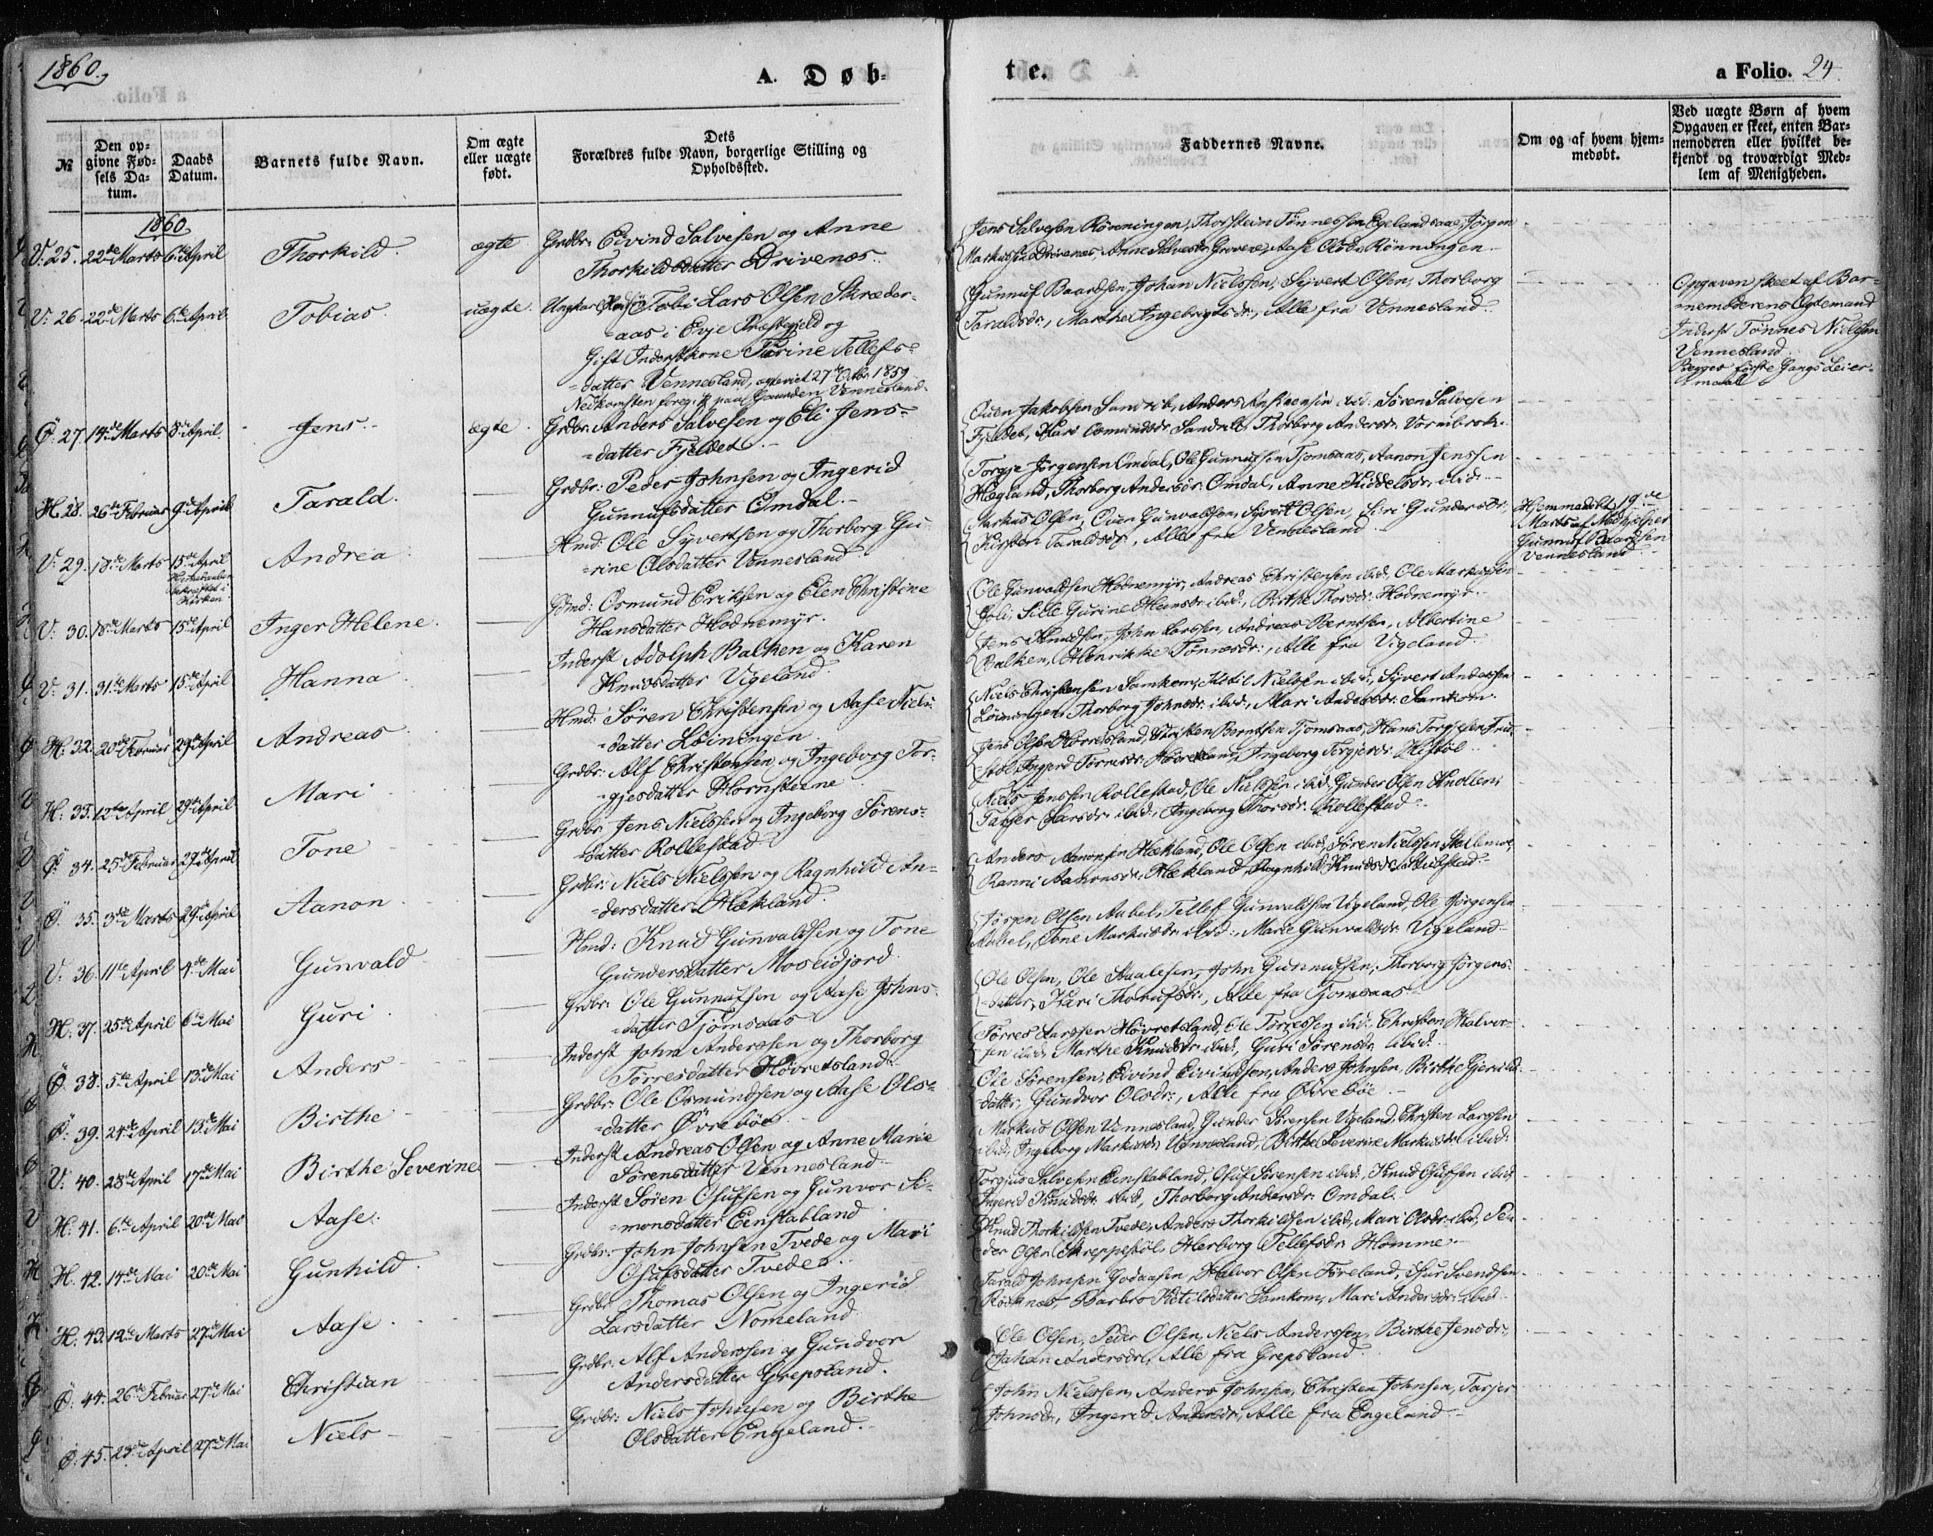 1860.
A. Døb-
te.
a Folio. 24.
№
Den op-
givne Fød-
sels Da-
tum.
Daabs
Datum.
Barnets fulde Navn.
Om ægte
eller uægte
født.
Dets
Forældres fulde Navn, borgerlige Stilling og
Opholdssted.
Faddernes Navne.
Om og af hvem hjem-
medøbt.
Ved uægte Børn af hvem
Opgaven er skeet, enten Bar-
nemoderen eller hvilket be-
kjendt og troværdigt Med-
lem af Menigheden.
1860
V: 25. 22de Marts 6te April Thorkild. ægte Grdbr: Eivind Salvesen og Anne
Thorkildsdatter Drivenæs.
Jens Salvesen Rönningen, Thorstein Tönnessen Egelandsaae, Jörgen
Markussen Drivenæs, Anne Salvesdr. Grovene, Aase Olsdr. Rönningen
V: 26. 22de Marts 6te April Tobias. uægte. Ungkar Lars Olsen Skræder-
aas i Evje Præstegjeld og
Gift Inderstkone Tarine Tellefs-
datter Vennesland, 27de 1859.
Nedkomsten foregik paa Gaarden Vennesland.
Gunnuf Baardsen, Johan Nielssen, Syvert Olsen, Thorborg
Taraldsdr., Marthe Ingebrigtsdr., Alle fra Vennesland.
Opgaven skeet af Bar-
nemoderens Ægtemand
Inderst Tönnes Nielsen
Vennesland.
Begges förste Gangs Leier-
maal
Ö: 27. 14de Marts 8de April. Jens. ægte. Grdbr: Anders Salvesen og Eli Jens-
datter Fjeldet.
Ouen Jakobsen Sandrib, Anders ibid. Sören Salvesen
Fjeldet, Osmundsdr. Sandrib, Thorborg Andersdr. Vormbrok.
H. 28. 26de Februar 9de April Tarald. Grdbr: Peder Johnsen og Ingerid
Gunnufsdatter Omdal.
Torgje Jörgensen Omdal, Ole Gunnufsen Tjomsaas, Aanon Jenssen
Hægland, Thorborg Andersdr. Omdal, Anne Kiddelsdr. ibid.
V: 29. 18de Marts 15de April
Hjemmedaaben
bekræftet i
Kirken
Andrea. Hmd: Ole Syvertsen og Thorborg Gu-
rine Olsdatter Vennesland
Markus Olsen, Ouen Gunvaldsen, Syvert Olsen, Siri Gundersdr.,
Kirsten Taraldsdr., Alle fra Vennesland
Hjemmedöbt 19de
Marts af Medhjelper
Gunnuf Baardsen
Vennesland
V: 30. 18de Marts 15de April Inger Helene. Gmd: Osmund Eriksen og Elen Christine
Hansdatter Hodnemyr.
Ole Gunvaldsen Hodnemyr, Andreas Christensen ibid., Ole Markussen
Joli, Sille Gurine Hansdr. ibid., Birthe Thorsdr. Hodnemyr.
V: 31. 31te Marts 15de April Hanna. Inderst Adolph Balchen og Karen
Knudsdatter Vigeland.
Jens Knudsen, John Larssen, Andreas Berntsen, Albertine
Balken, Henrikke Tönnesdr., Alle fra Vigeland
H. 32. 20de Februar 29de April Andreas. Hmd: Sören Christensen og Aase Niels-
datter Löiningen.
Niels Christensen Samkom, Kittil Nielsen ibid., Syvert Anderssen
Löiningen, Thorborg Johnsdr. ibid., Mari Andersdr. Samkom.
H. 33. 12te April 29de April Mari. Grdbr: Alf Christensen og Ingeborg Tor-
gjesdatter Hornsteine
Jens Olsen Hövretsland, Christen Berntsen Tjomsaas, Hans Torgjesen
Ingerd Torresdr. Hövretsland, Ingeborg Torgjesdr.
Ö 34. 25de Februar 29de April Tone Grdbr. Jens Nielssen og Ingeborg Sörens-
datter Rollestad
Niels Jenssen Rollestad, Ole Nielssen ibid., Gunder Olsen Knollen,
Tarjer Larsdr. ibid., Ingeborg Thorsdr. Rollestad.
Ö. 35. 3die Marts 29de April Aanon Grdbr: Niels Nielssen og Ragnhild An-
dersdatter Hækland.
Anders Aanonsen Hækland, Ole Olsen ibid., Sören Nielssen Stallemo,
Ranni Aanonsdr. Hækland, Ragnhild Knudsdr.
V: 36. 11te April 4de Mai Gunvald Hmd: Knud Gunvaldsen og Tone
Gundersdatter Moseidjord.
Jörgen Olsen Aabel, Tellef Gunvaldsen Vigeland, Ole Jörgensen
Aabel, Tone Markusdr. ibid., Marie Gunvaldsdr. Vigeland
H. 37. 25de April 6te Mai Guri. Grdbr: Ole Gunnufsen og Aase Johns-
datter Tjomsaas
Ole Olsen, Ole Aaalefsen, John Gunnufsen, Thorborg Jörgens-
datter, Kari Thorufsdr., Alle fra Tjomsaas.
Ö. 38. 5te April 13de Mai Anders Inderst John Anderssen og Thorborg
Torresdatter Hövretsland.
Törres Larssen Hövretsland, Ole Törressen ibid., Christen Halvor-
sen ibid., Marthe Knudsdr. ibid., Guri Sörensdr. ibid.
Ö: 39. 24de April 13de Mai Birthe Grdbr: Ole Osmundsen og Aase Ols-
datter Övreböe
Ole Sörensen, Eivind Eivindsen, Anders Johnsen, Birthe
datter, Gundvor Olsdr., Alle fra Övreböe
V: 40. 28de April 17de Mai Birthe Severine Inderst Andreas Olsen og Anne Marie
Sörensdatter Vennesland.
Markus Olsen Vennesland, Gunder Sörensen Vigeland, Christen Larssen
ibid., Ingeborg Markusdr. Vennesland, Birthe Severine Markusdr. ibid.
H: 41. 6te April 20de Mai Aase. Inderst Sören Osufsen og Gunvor Si-
monsdatter Eenstabland
Torgius Salvesen Eenstabland, Osuf Sörensen ibid., Knud Osufsen ibid.
Ingerid Knudsdr. ibid, Thorborg Andersdr. Omdal.
H. 42. 14de Mai 20de Mai Gunhild. Grdbr: John Johnsen Tvede og Mari
Osufsdatter Tvede.
Knud Thorkildsen Tvede, Anders Thorkildsen ibid, Mari Olsdr. ibid, Pe-
der Olsen Skreppestöl, Herborg Tellefsdr. Homme.
H. 43. 12te Marts 27de Mai Aase. Grdbr: Thomas Olsen og Ingerid
Larsdatter Nomeland
Tarald Johnsen Godaasen, Halvor Olsen Föreland, Osur Svendsen
Barbro Ketilsdatter Samkom, Mari Andersdr. ibid.
Ö: 44. 26de Februar 27de Mai Christian Grdbr: Alf Anderssen og Gundvor
Andersdatter Grepsland.
Ole Olsen, Peder Olsen, Niels Anderssen, Birthe Jensdr.,
Johan Andersdr., Alle fra Grepsland.
Ö. 45. 28de April 27de Mai Niels Grdbr: Niels Johnsen og Birthe
Olsdatter Engeland.
John Nielssen, Anders Johnsen, Christen Johnsen, Tarjer
Johnsdr., Ingerid Andersdr., Alle fra Engeland.